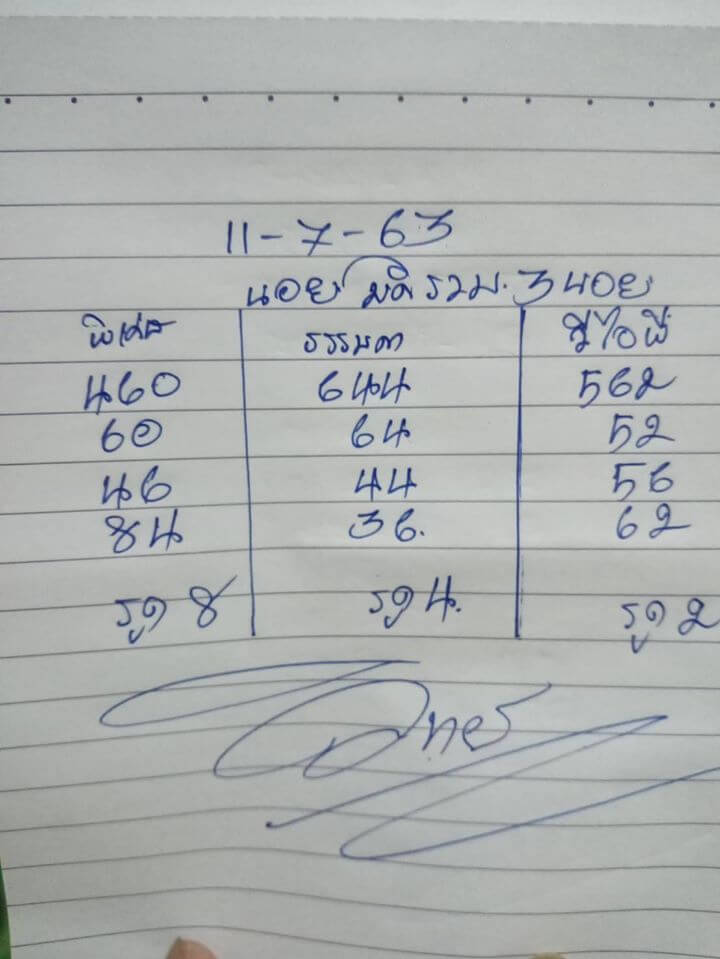 11-7-63
นอย มดิ รวม. 3 นอย
พิเศส ธรรมดา วีไอพี
460 644 562
60 64 52
46 44 56
84 36. 62
รูด 8 รูด 4. รูด 2